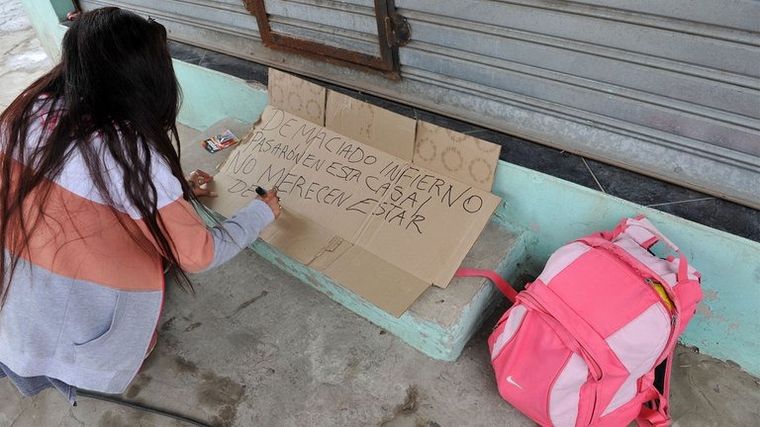 DEMACIADO INFIERNO
PASARON EN ESTA CASA!
NO MERECEN ESTAR
DE